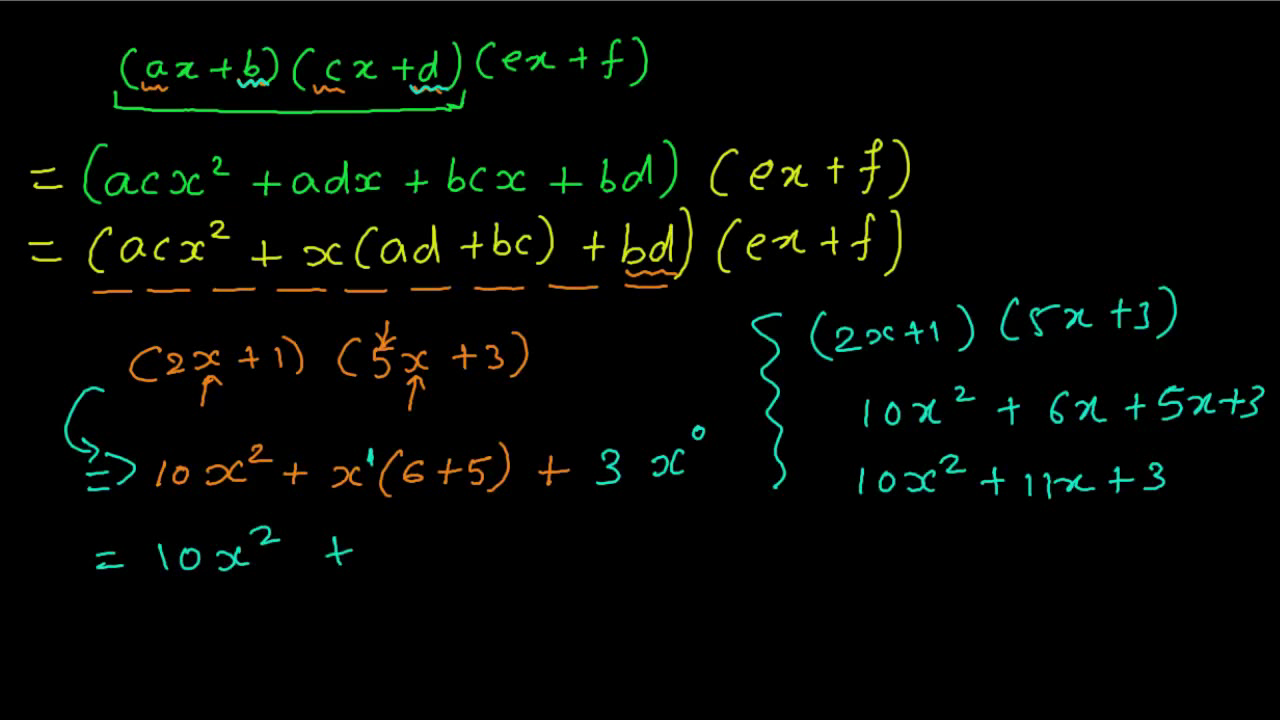 (ax+b)(cx+d)(ex+f)
= (acx² + adx + bcx + bd) (ex+f)
= (acx² + x(ad+bc) + bd) (ex+f)
(2x+1) (5x+3)
=> 10x² + x¹(6+5) + 3x⁰
= 10x² +
(2x+1) (5x+3)
10x² + 6x + 5x+3
10x² + 11x + 3